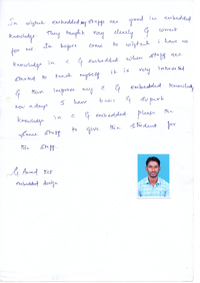 In wiztech embedded staffs are good in embedded
knowledge. They taught very clearly & correct
for us. In before come to wiztech i have no
knowledge in c & embedded. When staff are
started to teach myself it is very interested
& then improve my C & embedded knowledge
now a days I have basic &
knowledge in c & embedded. please the
same staff to give the student for
the staff.
embedded design